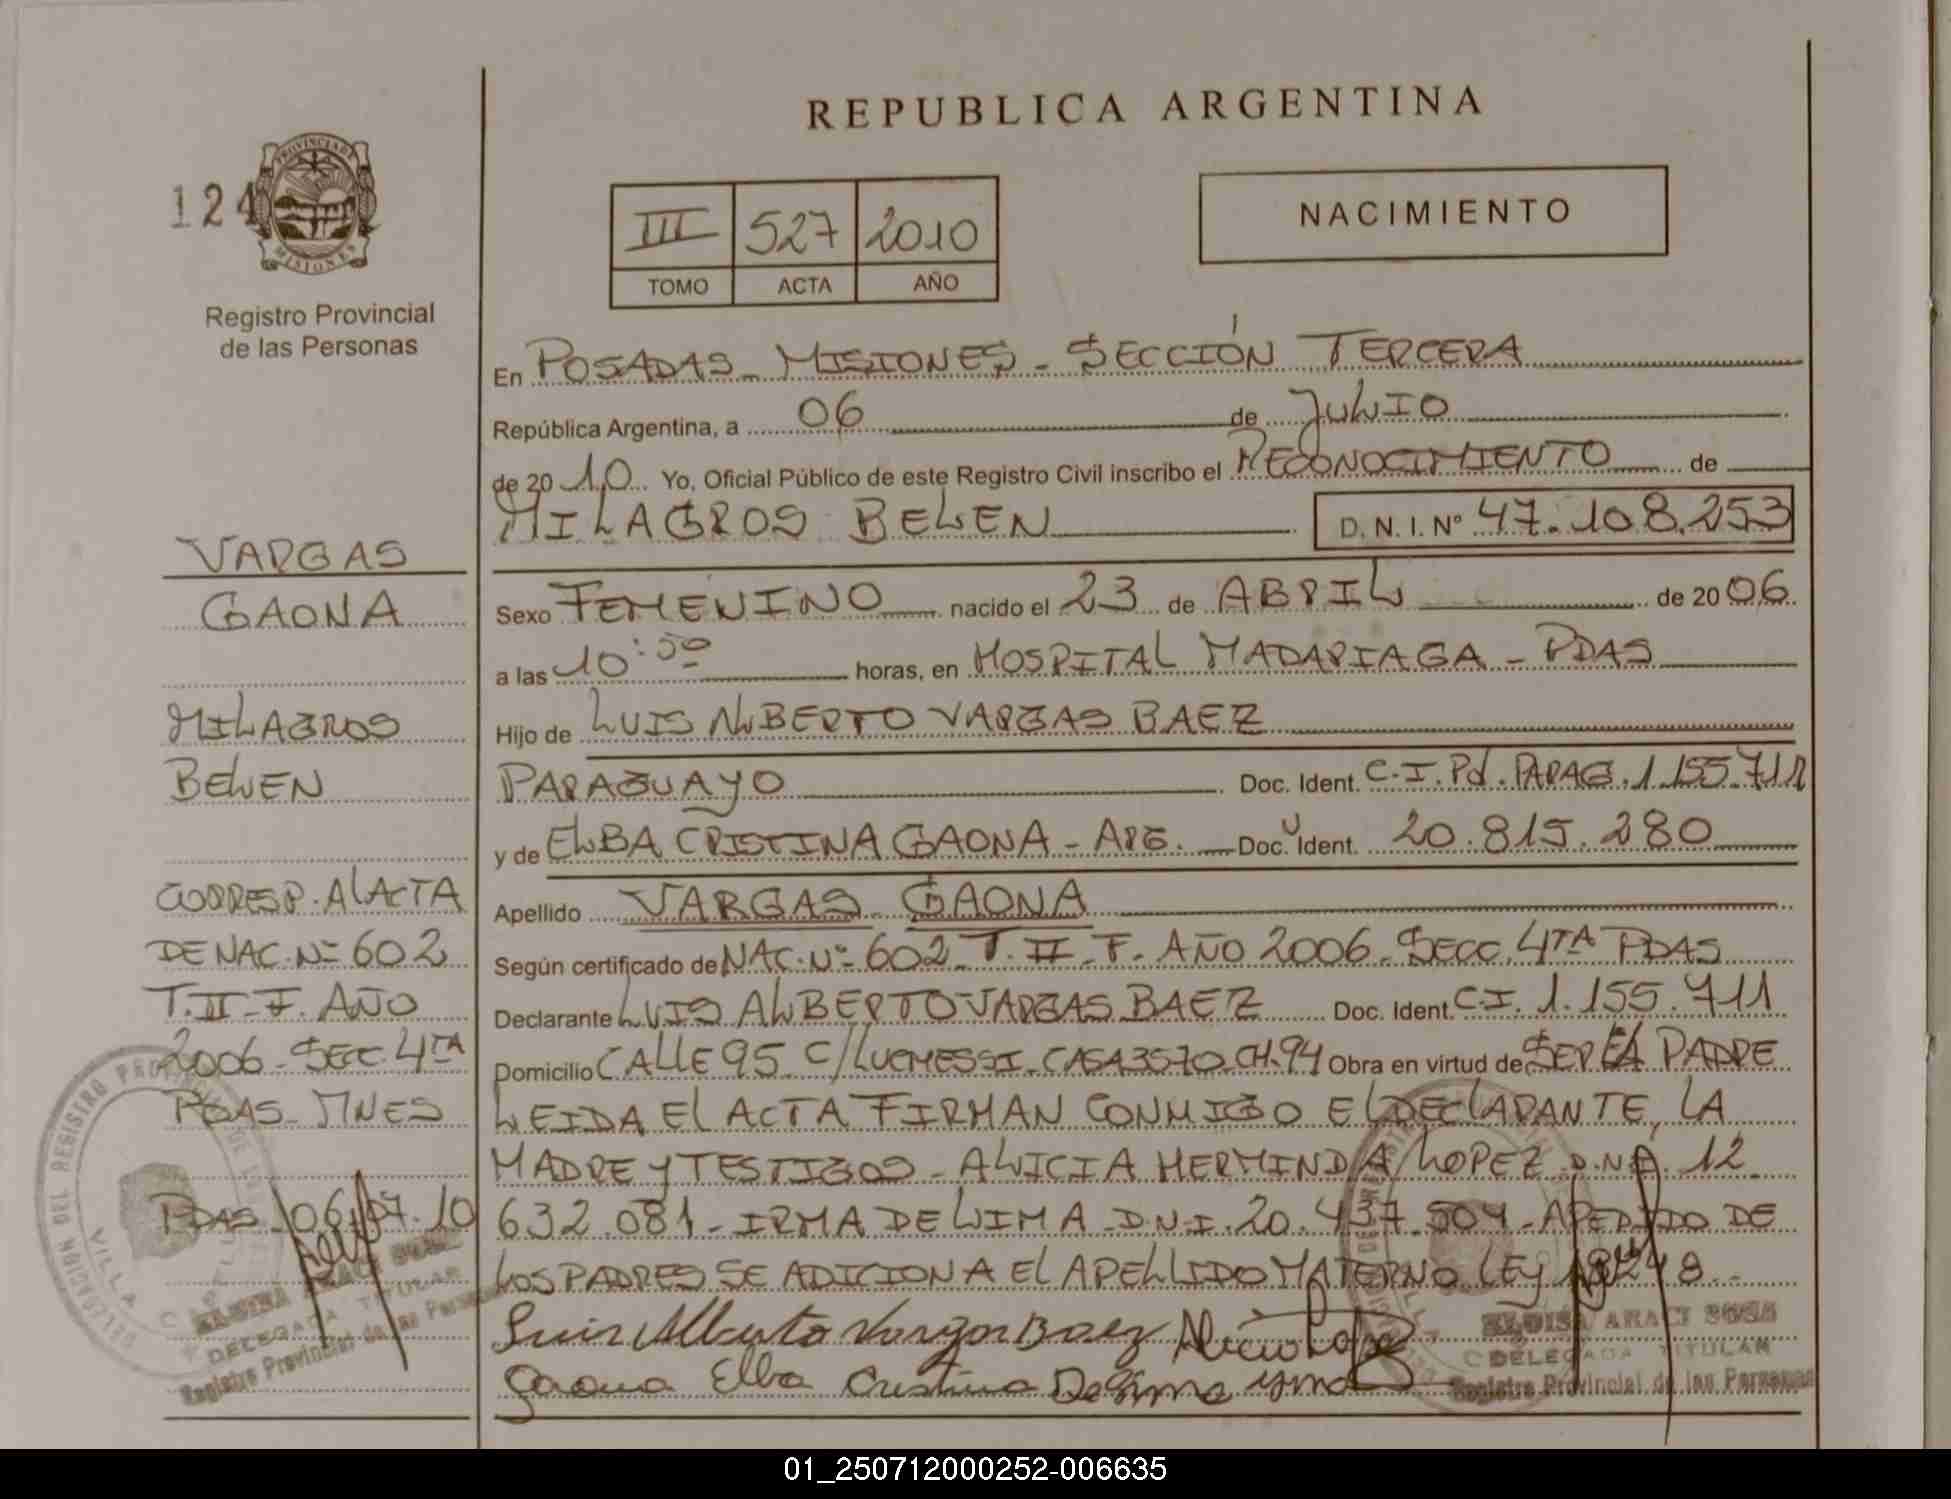 REPUBLICA ARGENTINA
124
PROVINCIA DE MISIONES
Registro Provincial
de las Personas
III 527 2010
TOMO ACTA AÑO
NACIMIENTO
En POSADAS - MISIONES - SECCIÓN TERCERA
República Argentina, a 06 de JULIO
de 2010. Yo, Oficial Público de este Registro Civil inscribo el RECONOCIMIENTO de
MILAGROS BELEN D. N. I. Nº 47.108.253
Sexo FEMENINO nacido el 23 de ABRIL de 2006
a las 10:50 horas, en HOSPITAL MADARIAGA - PDAS
Hijo de LUIS ALBERTO VARGAS BAEZ
PARAGUAYO Doc. Ident. C.I. Pol. PARAG. 1.155.711
y de ELBA CRISTINA GAONA - ARG. Doc. Ident. 20.815.280
Apellido VARGAS GAONA
Según certificado de NAC. Nº 602 T. II - F. AÑO 2006 - SECC. 4TA PDAS
Declarante LUIS ALBERTO VARGAS BAEZ Doc. Ident. C.I. 1.155.711
Domicilio CALLE 95 C/ LUCHESSI - CASA 3570 CH. 94 Obra en virtud de SER EL PADRE
LEIDA EL ACTA FIRMAN CONMIGO EL DECLARANTE, LA
MADRE Y TESTIGOS - ALICIA HERMINDA LOPEZ D.N.I. 12
632.081 - IRMA DE LIMA - D.N.I. 20.437.504 - A PEDIDO DE
LOS PADRES SE ADICIONA EL APELLIDO MATERNO LEY 18248
Luis Alberto Vargas Baez Alicia Lopez
Gaona Elba Cristina De Lima Irma
ELOISA ARACI SOSA
DELEGADA TITULAR
Registro Provincial de las Personas
VARGAS
GAONA
MILAGROS
BELEN
CORRESP. AL ACTA
DE NAC. Nº 602
T. II - F. AÑO
2006 - SECC. 4TA
PDAS - MNES
PDAS - 06.07.10
ELOISA ARACI SOSA
DELEGADA TITULAR
Registro Provincial de las Personas
01_250712000252-006635